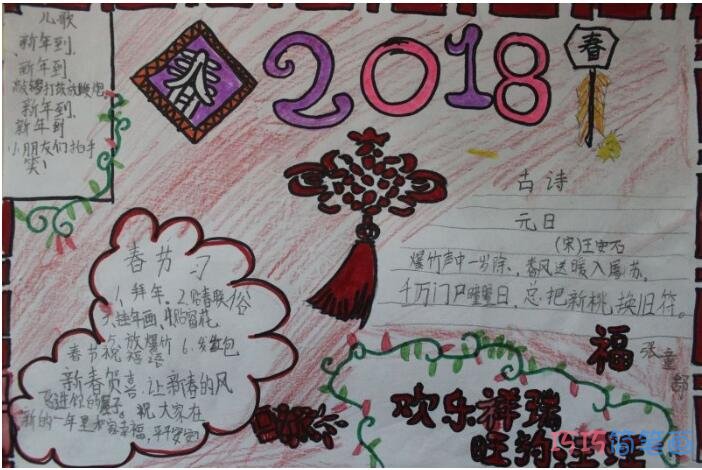 儿歌
新年到
新年到
敲锣打鼓放鞭炮
新年到
新年到
小朋友们拍手
笑
春
2018
春
古诗
元日
(宋)王安石
爆竹声中一岁除，春风送暖入屠苏。
千万门户瞳瞳日，总把新桃换旧符。
春节习
俗
1、拜年、2、贴春联、
3、挂年画、4、贴窗花
5、放爆竹 6、发红包
春节祝福语
新春贺喜，让新春的风
飞进你的屋子，祝大家在
新的一年里和和幸福，平平安安
福
张童
欢乐祥瑞
旺狗
简笔画